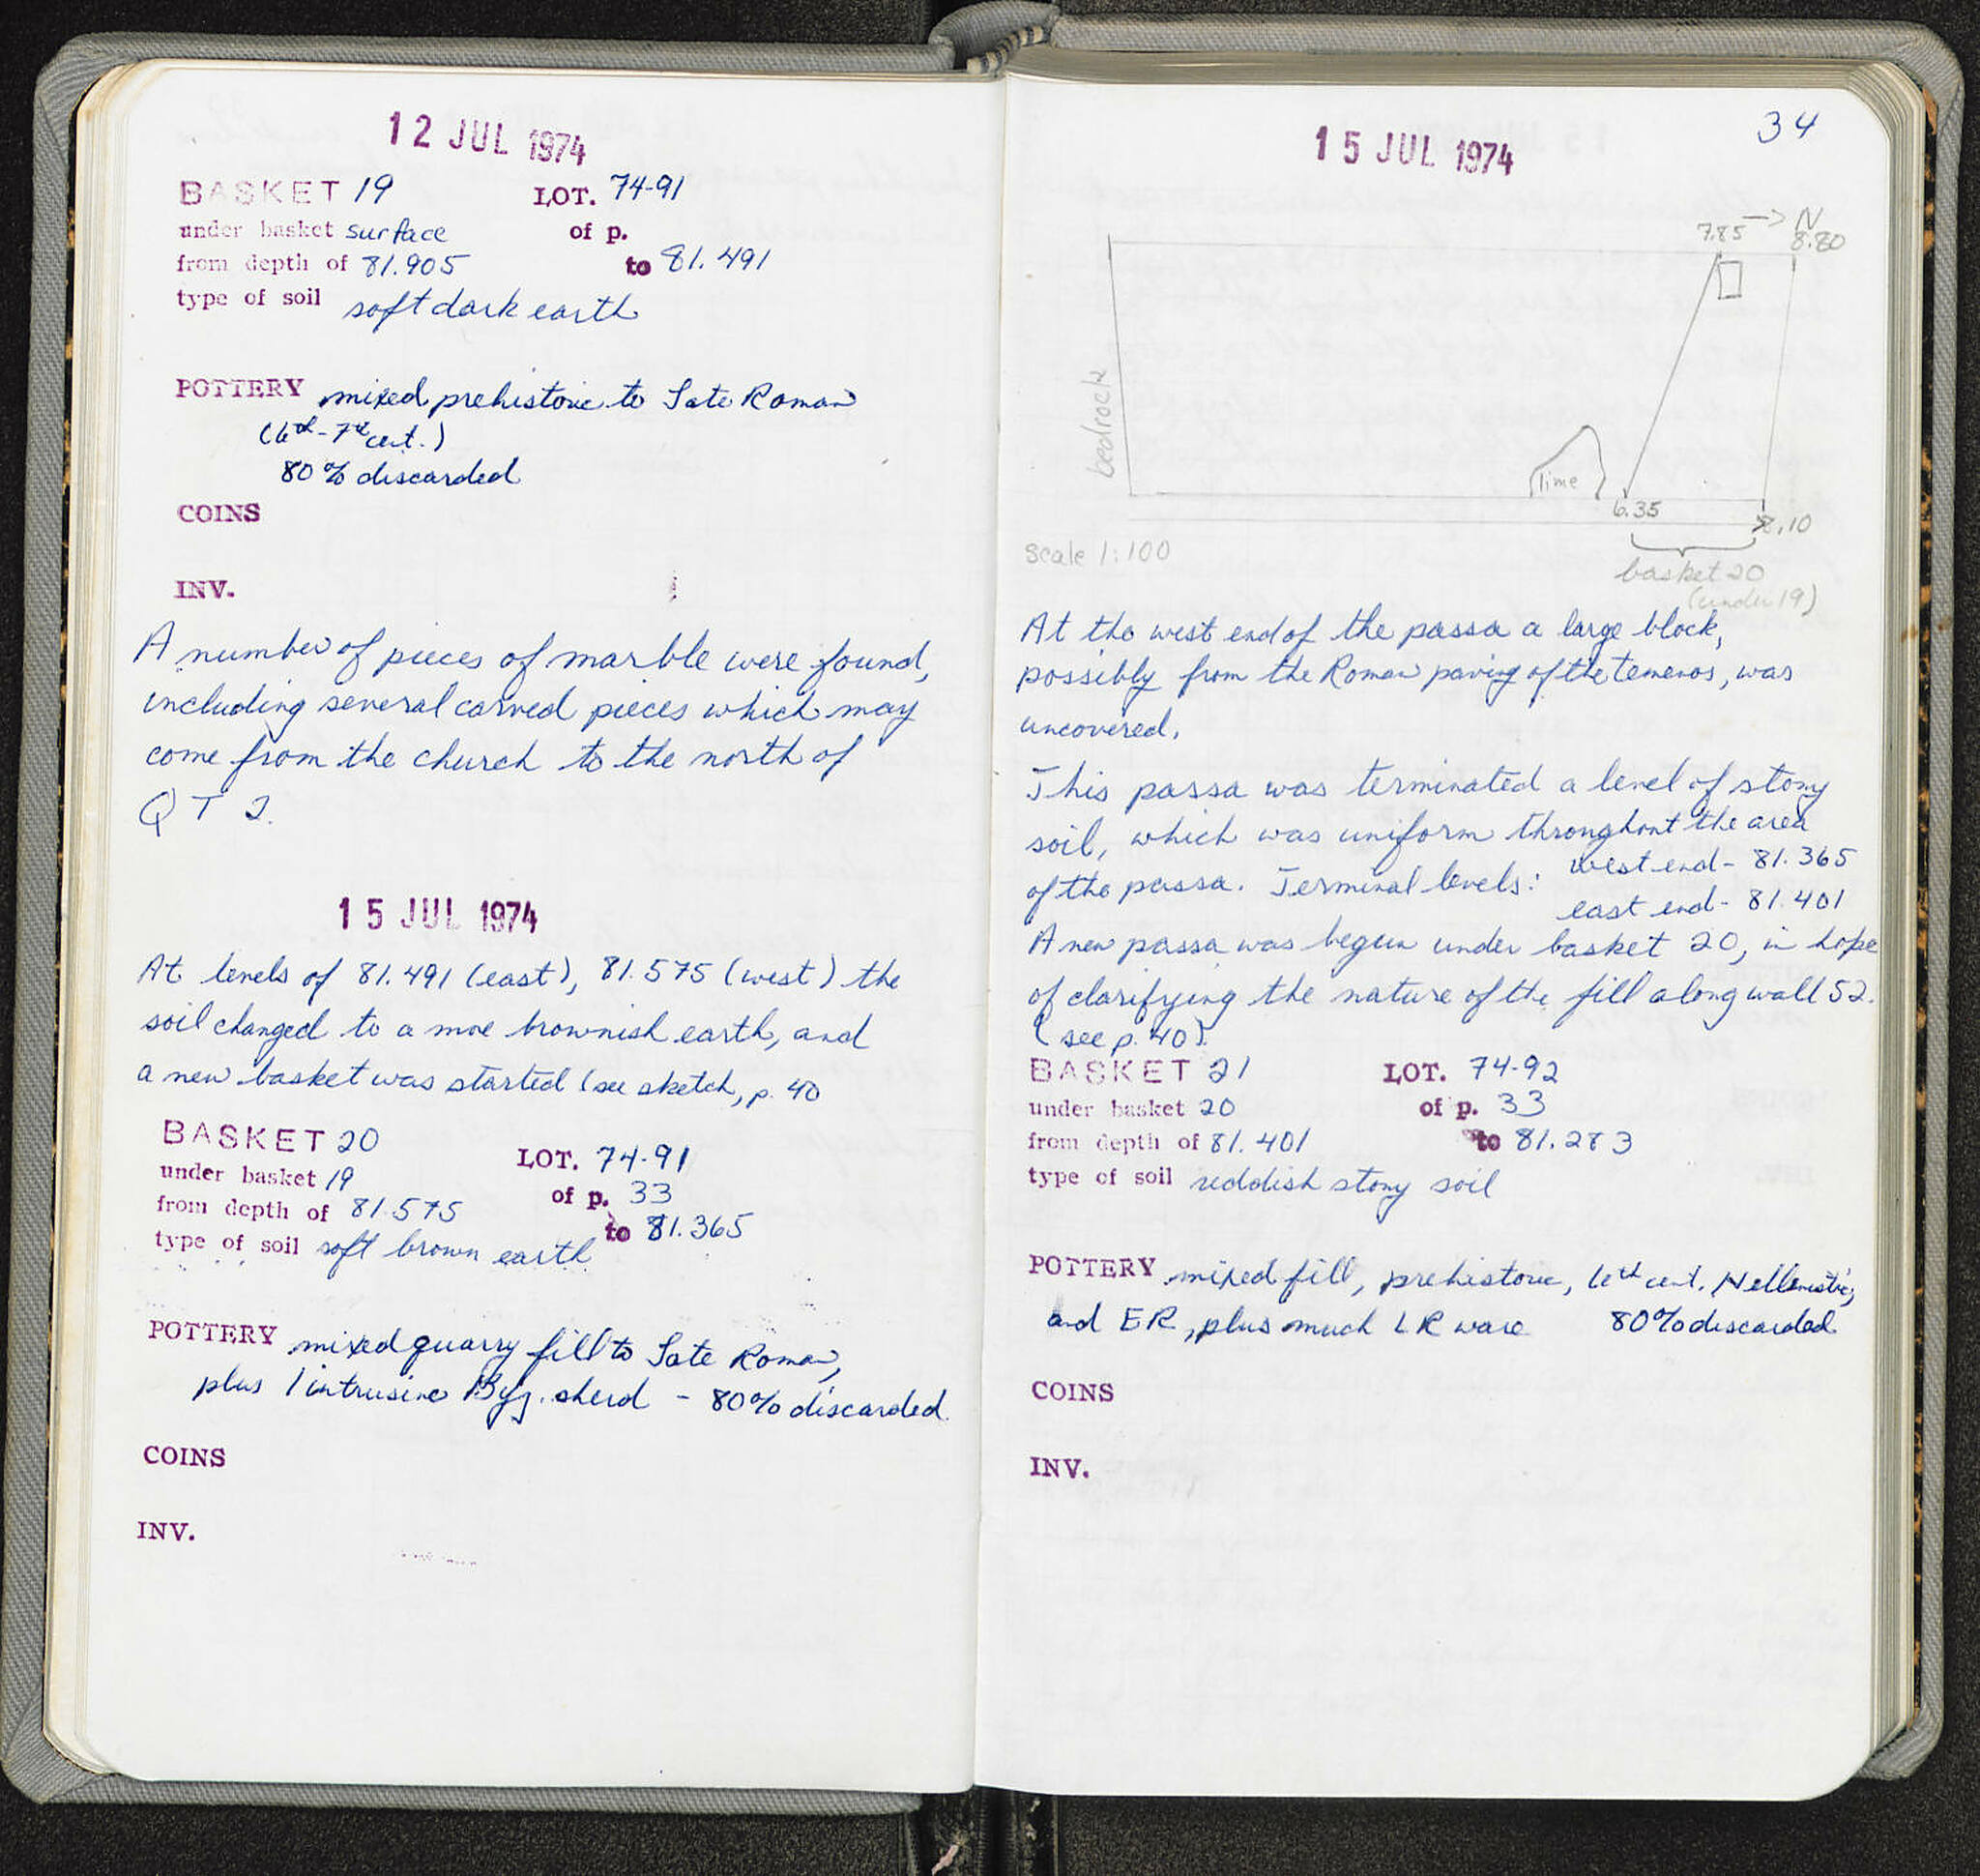 12 JUL 1974
BASKET 19 LOT. 74-91
under basket surface of p.
from depth of 81.905 to 81.491
type of soil soft dark earth
POTTERY mixed prehistoric to Late Roman
(6th-7th cent.)
80% discarded
COINS
INV.
A number of pieces of marble were found,
including several carved pieces which may
come from the church to the north of
QT 2.
15 JUL 1974
At levels of 81.491 (east), 81.575 (west) the
soil changed to a more brownish earth, and
a new basket was started (see sketch, p. 40
BASKET 20 LOT. 74-91
under basket 19 of p. 33
from depth of 81.575 to 81.365
type of soil soft brown earth
POTTERY mixed quarry fill to Late Roman,
plus 1 intrusive Byz. sherd - 80% discarded.
COINS
INV.
34
15 JUL 1974
N
7.85 8.80
bedrock
lime
6.35
8.10
scale 1:100
basket 20
(under 19)
At the west end of the passa a large block,
possibly from the Roman paving of the temenos, was
uncovered.
This passa was terminated a level of stony
soil, which was uniform throughout the area
of the passa. Terminal levels: west end - 81.365
east end - 81.401
A new passa was begun under basket 20, in hope
of clarifying the nature of the fill along wall 52.
(see p. 40).
BASKET 21 LOT. 74-92
under basket 20 of p. 33
from depth of 81.401 to 81.283
type of soil reddish stony soil
POTTERY mixed fill, prehistoric, 6th cent. Hellenistic,
and ER, plus much LR ware 80% discarded
COINS
INV.